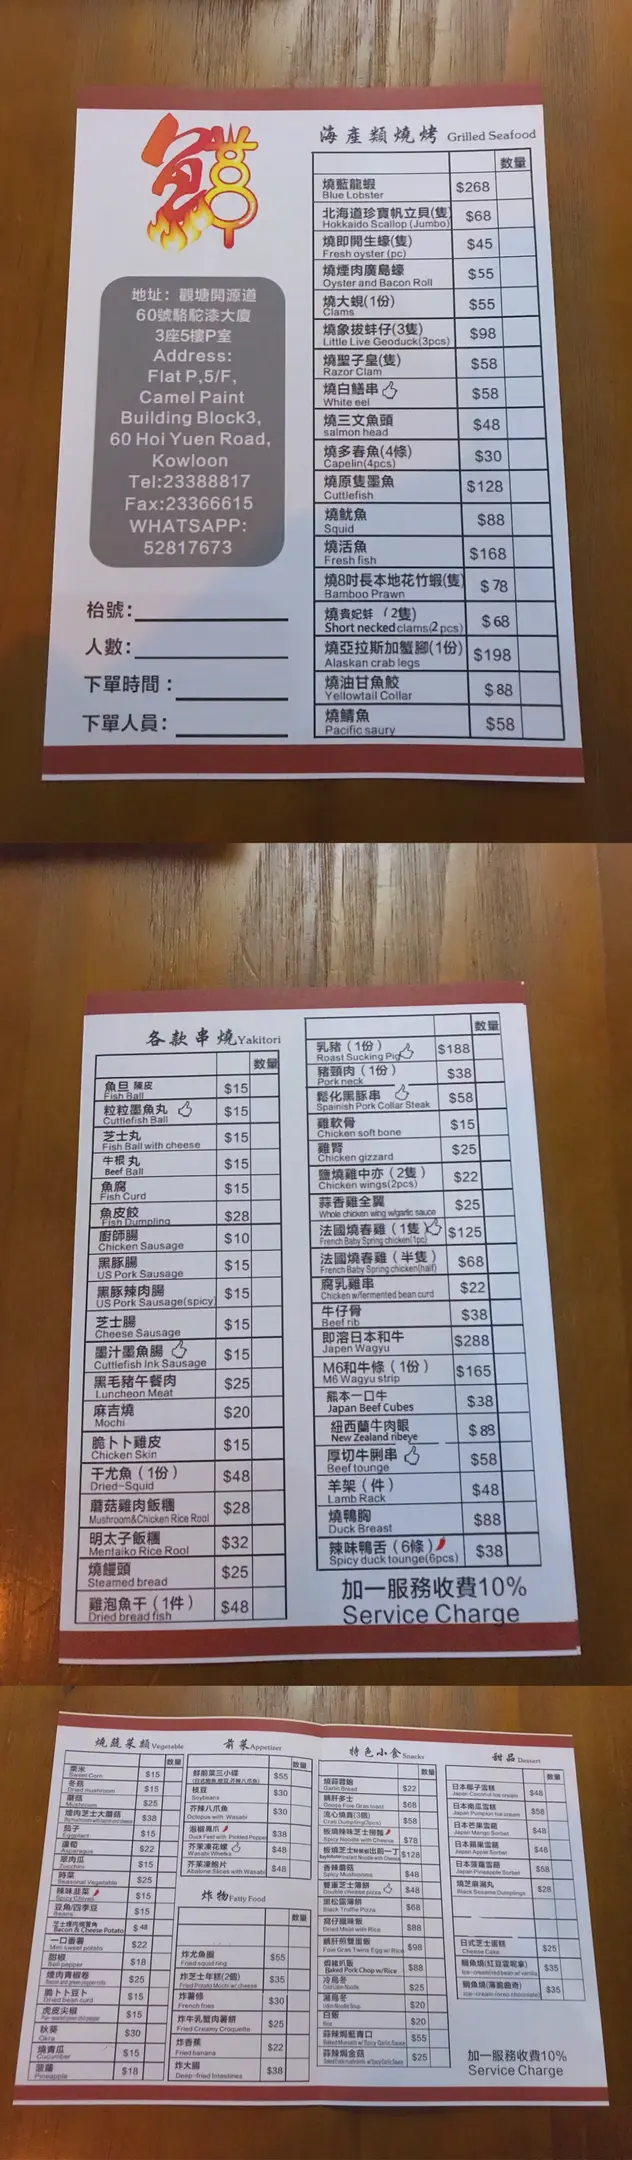 鱻
地址：觀塘開源道
60號駱駝漆大廈
3座5樓P室
Address:
Flat P,5/F,
Camel Paint
Building Block3,
60 Hoi Yuen Road,
Kowloon
Tel:23388817
Fax:23366615
WHATSAPP:
52817673
枱號：
人數：
下單時間：
下單人員：
海產類燒烤 Grilled Seafood
数量
燒藍龍蝦 $268
Blue Lobster
北海道珍寶帆立貝(隻) $68
Hokkaido Scallop (Jumbo)
燒即開生蠔(隻) $45
Fresh oyster (pc)
燒煙肉廣島蠔 $55
Oyster and Bacon Roll
燒大蜆(1份) $55
Clams
燒象拔蚌仔(3隻) $98
Little Live Geoduck(3pcs)
燒聖子皇(隻) $58
Razor Clam
燒白鱔串 $58
White eel
燒三文魚頭 $48
salmon head
燒多春魚(4條) $30
Capelin(4pcs)
燒原隻墨魚 $128
Cuttlefish
燒魷魚 $88
Squid
燒活魚 $168
Fresh fish
燒8吋長本地花竹蝦(隻) $78
Bamboo Prawn
燒貴妃蚌（2隻） $68
Short necked clams(2 pcs)
燒亞拉斯加蟹腳(1份) $198
Alaskan crab legs
燒油甘魚鮫 $88
Yellowtail Collar
燒鯖魚 $58
Pacific saury
各款串燒 Yakitori
数量
魚旦 陳皮 $15
Fish Ball
粒粒墨魚丸 $15
Cuttlefish Ball
芝士丸 $15
Fish Ball with cheese
牛根丸 $15
Beef Ball
魚腐 $15
Fish Curd
魚皮餃 $28
Fish Dumpling
廚師腸 $10
Chicken Sausage
黑豚腸 $15
US Pork Sausage
黑豚辣肉腸 $15
US Pork Sausage(spicy)
芝士腸 $15
Cheese Sausage
墨汁墨魚腸 $15
Cuttlefish Ink Sausage
黑毛豬午餐肉 $25
Luncheon Meat
麻吉燒 $20
Mochi
脆卜卜雞皮 $15
Chicken Skin
干尤魚（1份） $48
Dried-Squid
蘑菇雞肉飯糰 $28
Mushroom&Chicken Rice Rool
明太子飯糰 $32
Mentaiko Rice Rool
燒饅頭 $25
Steamed bread
雞泡魚干（1件） $48
Dried bread fish
数量
乳豬（1份） $188
Roast Sucking Pig
豬頸肉（1份） $38
Pork neck
鬆化黑豚串 $58
Spainish Pork Collar Steak
雞軟骨 $15
Chicken soft bone
雞腎 $25
Chicken gizzard
鹽燒雞中亦（2隻） $22
Chicken wings(2pcs)
蒜香雞全翼 $25
Whole chicken wing w/garlic sauce
法國燒春雞（1隻） $125
French Baby Spring chicken(1pc)
法國燒春雞（半隻） $68
French Baby Spring chicken(half)
腐乳雞串 $22
Chicken w/fermented bean curd
牛仔骨 $38
Beef rib
即溶日本和牛 $288
Japen Wagyu
M6和牛條（1份） $165
M6 Wagyu strip
熊本一口牛 $38
Japan Beef Cubes
紐西蘭牛肉眼 $88
New Zealand ribeye
厚切牛脷串 $58
Beef tounge
羊架（件） $48
Lamb Rack
燒鴨胸 $88
Duck Breast
辣味鴨舌（6條） $38
Spicy duck tounge(6pcs)
加一服務收費10%
Service Charge
燒蔬菜類 Vegetable
数量
粟米 $15
Sweet Corn
冬菇 $15
Dried mushroom
蘑菇 $25
Mushroom
煙肉芝士大蘑菇 $38
茄子 $15
Eggplant
露筍 $22
Asparagus
翠肉瓜 $15
Zucchini
時菜 $25
Seasonal Vegetable
辣味韭菜 $15
Spicy Chives
豆角/四季豆 $15
Beans
芝士煙肉焗薯角 $48
Bacon & Cheese Potato
一口番薯 $22
Mini sweet potato
甜椒 $18
Bell pepper
煙肉青椒卷 $25
脆卜卜豆卜 $15
Dried bean curd
虎皮尖椒 $15
秋葵 $30
Okra
燒青瓜 $15
Cucumber
菠蘿 $18
Pineapple
前菜 Appetizer
数量
鮮前菜三小碟 $55
枝豆 $30
Soybeans
芥辣八爪魚 $30
Octopus with Wasabi
泡椒鳳爪 $38
Duck Feet with Pickled Pepper
芥茉凍花螺 $48
Wasabi Whelks
芥茉凍鮑片 $48
Abalone Slices with Wasabi
炸物 Fatty Food
数量
炸尤魚圈 $55
Fried squid ring
炸芝士年糕(2個) $35
Fried Potato Mochi w/ cheese
炸薯條 $30
French foes
炸牛乳蟹肉薯餅 $25
Fried Creamy Croquette
炸香蕉 $22
Fried banana
炸大腸 $38
Deep-fried Intestines
特色小食 Snacks
数量
燒蒜蓉飽 $22
Garlin Bread
鵝肝多士 $68
Goose Foie Gras toast
流心燒賣(3個) $58
Crab Dumpling(3pcs)
板燒辣味芝士撈麵 $78
Spicy Noodle with Cheese
$128
香辣蘑菇 $48
Spicy Mushrooms
雙重芝士薄餅 $48
Double cheese pizza
黑松露薄餅 $68
Black Truffle Pizza
窩仔臘味飯 $88
Dried Meat with Rice
鵝肝煎雙蛋飯 $98
Foie Gras Twins Egg w/ Rice
焗豬扒飯 $88
Baked Pork Chop w/Rice
冷烏冬 $25
Cold Udon Noodle
湯烏冬 $20
Udon Noodle Soup
白飯 $20
Rice
蒜辣焗藍青口 $55
Baked Mussels w/ Spicy Garlic Sauce
蒜辣焗金菇 $25
甜品 Dessert
数量
日本椰子雪糕 $48
Japan Coconut Ice cream
日本南瓜雪糕 $58
Japan Pumpkin Ice cream
日本芒果雪葩 $48
Japan Mango Sorbet
日本蘋果雪葩 $48
Japan Apple Sorbet
日本菠蘿雪葩 $58
Japan Pineapple Sorbet
燒芝麻湯丸 $28
Black Sesame Dumplings
日式芝士蛋糕 $25
Cheese Cake
鯛魚燒(紅豆雲呢拿) $35
Ice-cream(red bean w/ vanilla)
鯛魚燒(薄脆曲奇) $35
Ice-cream (oreo chocolate)
加一服務收費10%
Service Charge